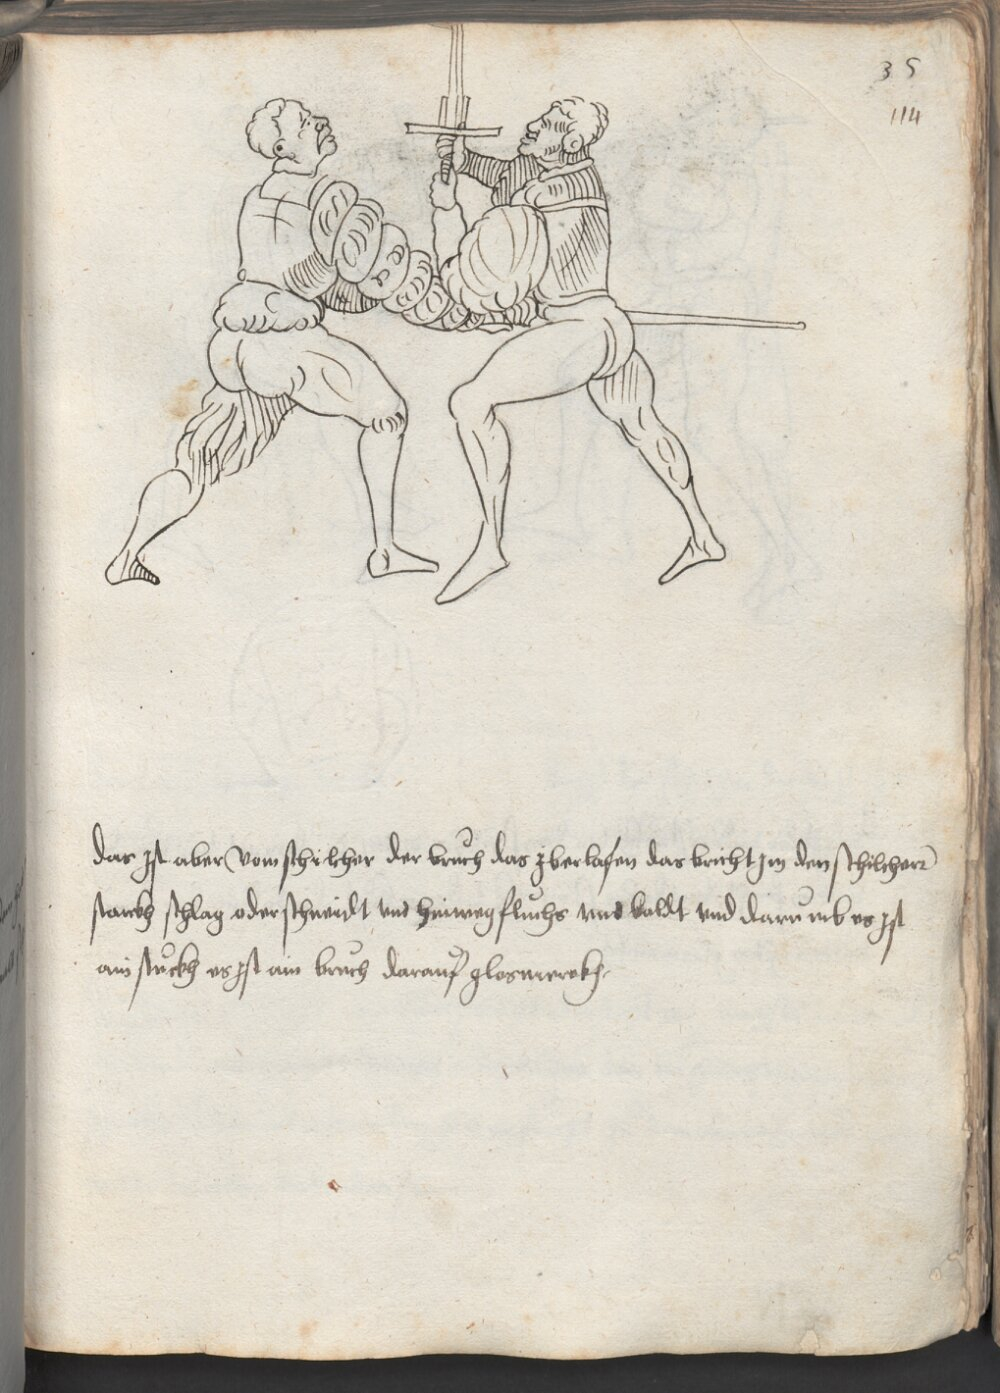 35
114
das ist aber vom schilcher der bruch das jberlafen das bricht jm den schilcherr
starckh schlag oder schneidt und hinweg fluchs und baldt und darumb es jst
ain stuckh es jst ain bruch darauf glosmerckh